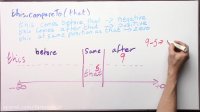 this.compareTo(that)
this comes before that → negative
this comes after that → positive
this at same position as that → zero
before
same
after
this
9
5
that
9-5→